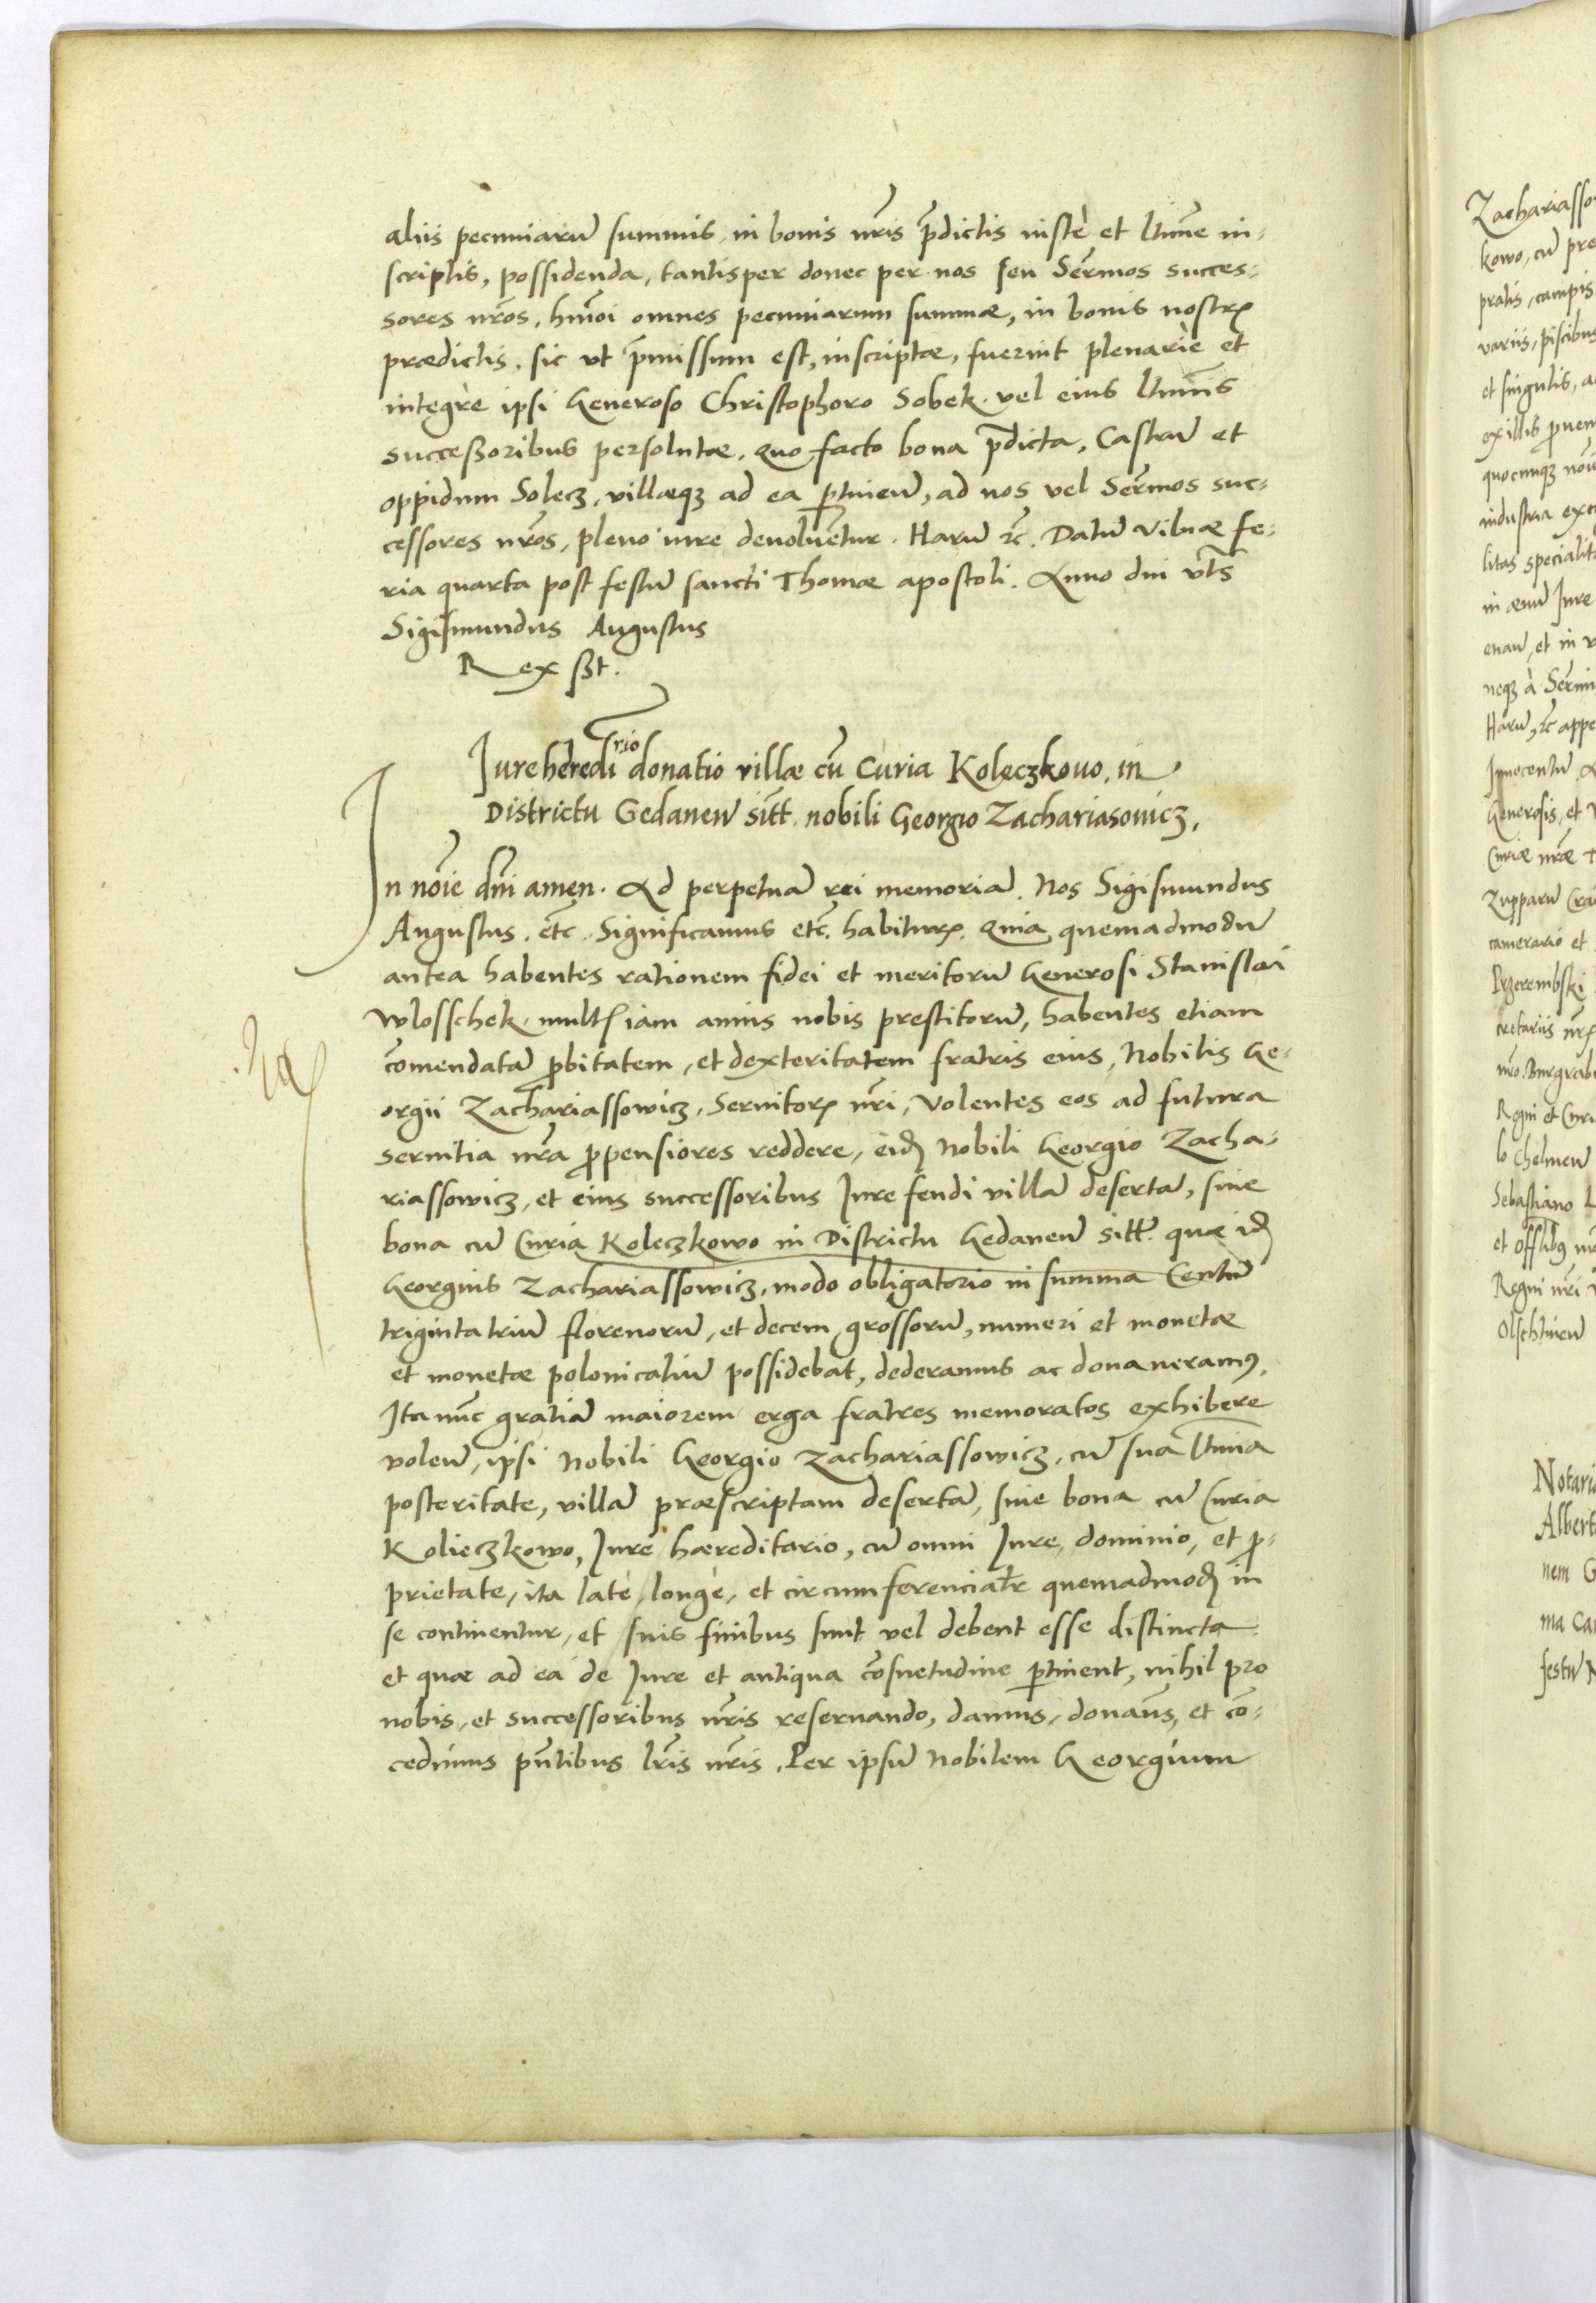 aliis pecuniarũ summis, in bonis nr̃is p̃dictis iustè et ltime in-
scriptis, possidenda, tantisper donec per nos seu Serm̃os succes-
sores nr̃os, hmõi omnes pecuniarum summæ, in bonis nostrꝭ
prædictis, sic vt p̃missum est, inscriptæ, fuerint plenariè et
integrè ipsi Generoso Christophoro Sobek, vel eius ltimis
successoribus persolutæ. Quo facto bona p̃dicta, Castrũ et
oppidum Solecz, villæqꝫ ad ea ꝑtineñ, ad nos vel Serm̃os suc-
cessores nr̃os, pleno iure deuoluẽtur. Harũ ꝛc̃. Datũ Vilnæ fe-
ria quarta post festũ sancti Thomæ apostoli. Anno dñi vt̃s
Sigismundus Augustus
Rex sst.
Iure heredirio donatio villæ cũ Curia Koleczkouo, in
Districtu Gedaneñ sitt. nobili Georgio Zachariasouicz.
In nõie dñi amen. Ad perpetuã rei memoriã. Nos Sigismundus
Augustus. etc̃. Significamus etc̃. habiturꝭ. Quia quemadmodũ
antea habentes rationem fidei et meritorũ Generosi Stanislai
Wlosschek, multꝭ iam annis nobis prestitorũ, habentes etiam
cõmendatã ꝓbitatem, et dexteritatem fratris eius, Nobilis Ge-
orgii Zachariassowicz, Seruitorꝭ nr̃i, Volentes eos ad futura
seruitia nr̃a ꝓpensiores reddere, eidẽ Nobili Georgio Zacha-
riassowicz, et eius successoribus Iure feudi villã desertã, siue
bona cũ Curia Koleczkowo in Districtu Gedaneñ sitt. quæ idẽ
Georgius Zachariassowicz, modo obligatorio in summa Centũ
triginta triũ florenorũ, et decem grossorũ, numeri et monetæ
et monetæ polonicaliũ possidebat, dederamus ac donaueramꝰ,
Ita nũc gratiã maiorem erga fratres memoratos exhibere
voleñ, ipsi Nobili Georgio Zachariassowicz, cũ sua ltima
posteritate, villã præscriptam desertã, siue bona cũ Curia
Kolieczkowo, Iure hæreditario, cũ omni Iure, dominio, et ꝓ-
prietate, ita latè, longè, et circumferencialr̃ quemadmodũ in
se continentur, et suis finibus sunt vel debent esse distincta
et quæ ad ea de Iure et antiqua cõsuetudine ꝑtinent, nihil pro
nobis, et successoribus nr̃is reseruando, damus, donam̃s, et cõ-
cedimus pñtibus lr̃is nr̃is. Per ipsũ Nobilem Georgium
Zachariasso
kowo, cũ pre
pratis, campis
variis, piscibus
et singulis, a
ex illis ꝓuen
quocunqꝫ nõie
industria exc
litas specialit
in æuũ Iure
enañ, et in v
neqꝫ à Sermi
Harũ, ꝛc̃ appe
Innocentũ. A
Generosis, et V
Curiæ nr̃æ T
Zupparũ Cra
camerario et
Przerembski
cretariis nr̃ꝭ
nr̃o. Burgrab
Regni et Curi
lo Chelmeñ
Sebastiano L
et Offlibꝰ nr̃
Regni nr̃i v
Olschtineñ
Notari
Albert
nem G
ma Ca
festũ N